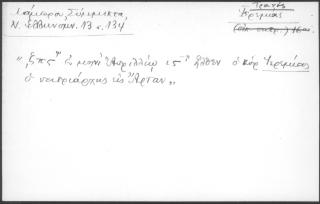 Λάμπρος, Σύμμικτα,
Ν. Ἑλληνομν. 13 σ. 134
Ἱερεμίας
"ζπς ἐν μηνὶ Ἀπριλλίῳ ις ἦλθεν ὁ κὺρ Ἱερεμίας
ὁ πατριάρχης εἰς Ἄρταν"